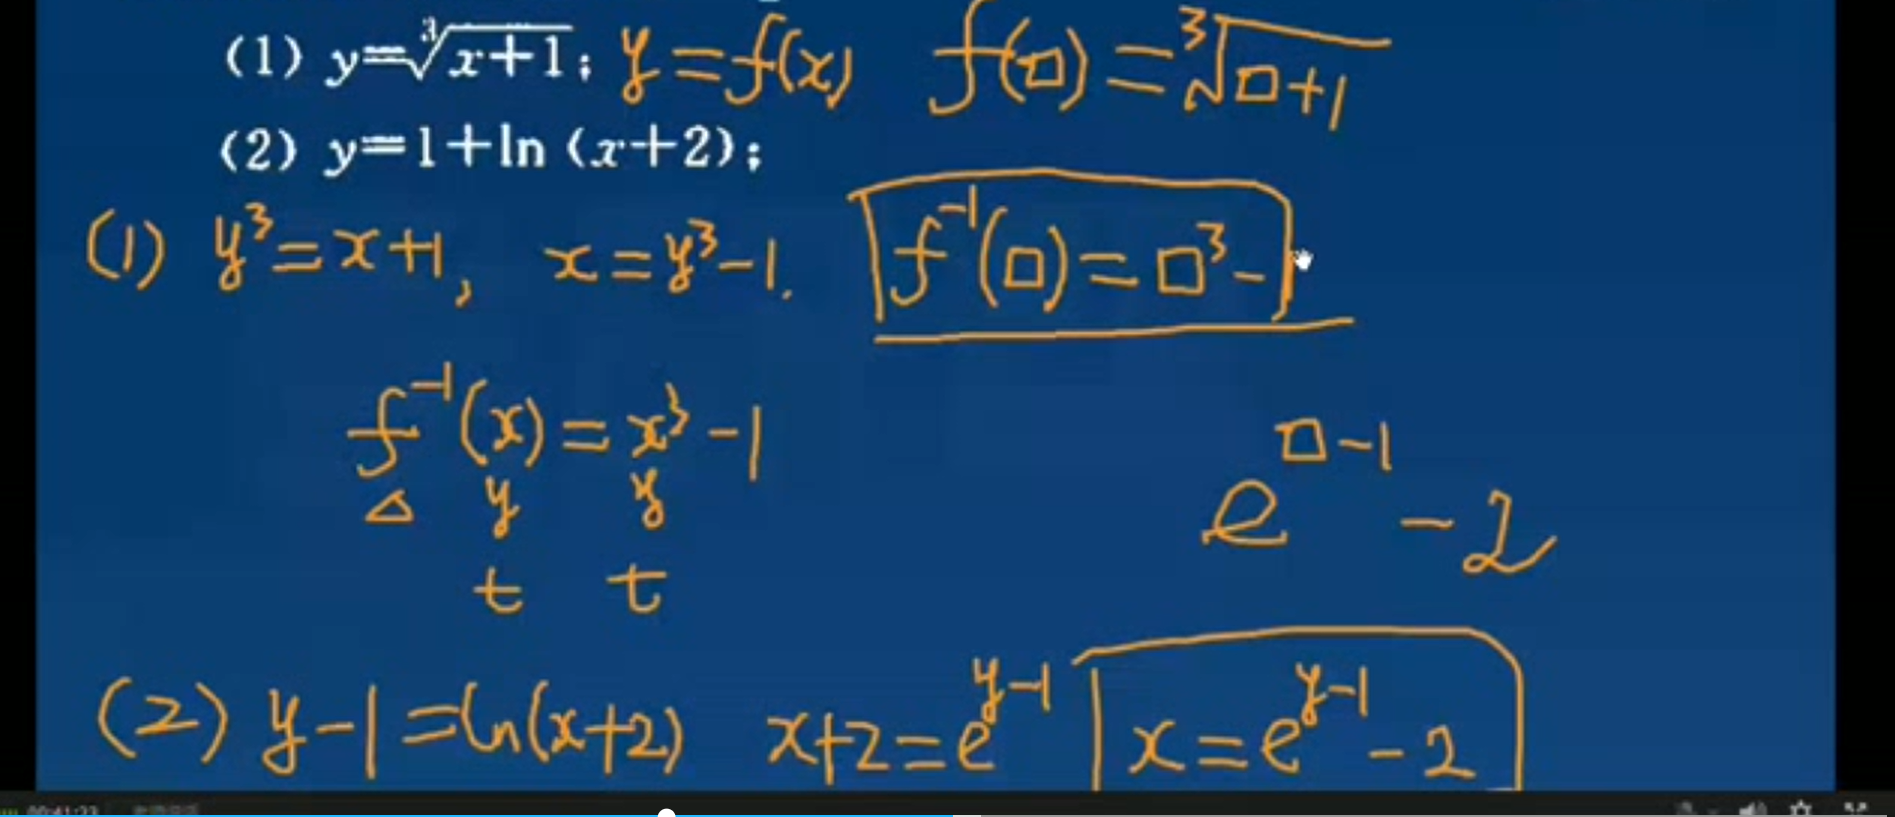 (1) y=∛x+1; y=f(x) f(□)=∛□+1
(2) y=1+ln (x+2);
(1) y³=x+1, x=y³-1. f⁻¹(□)=□³-
f⁻¹(x)=x³-1
△ y y
t t
e^□-1 -2
(2) y-1=ln(x+2) x+2=e^y-1 x=e^y-1 -2
00:41:23